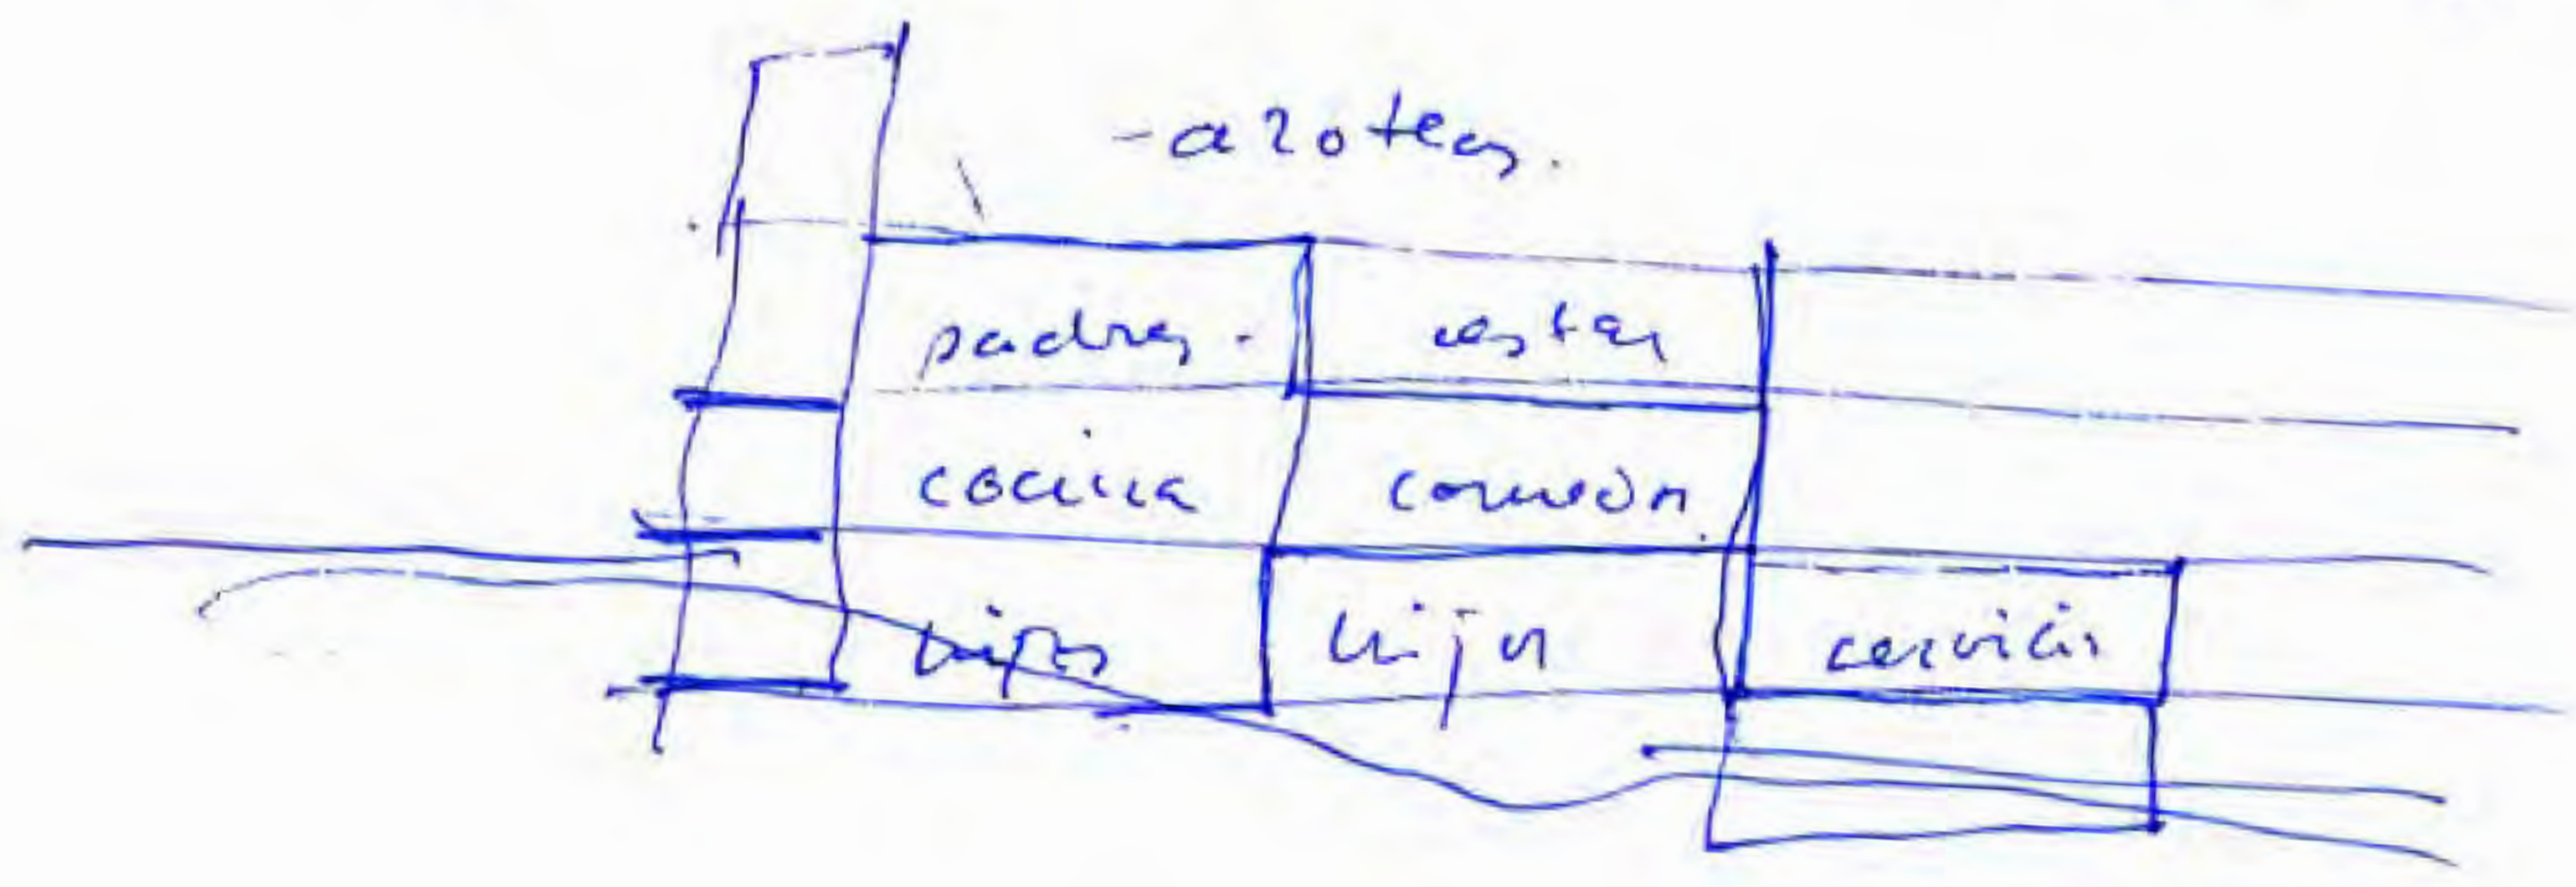 - azoteas.
padres. estar
cocina comedor.
hijos hijos servicio